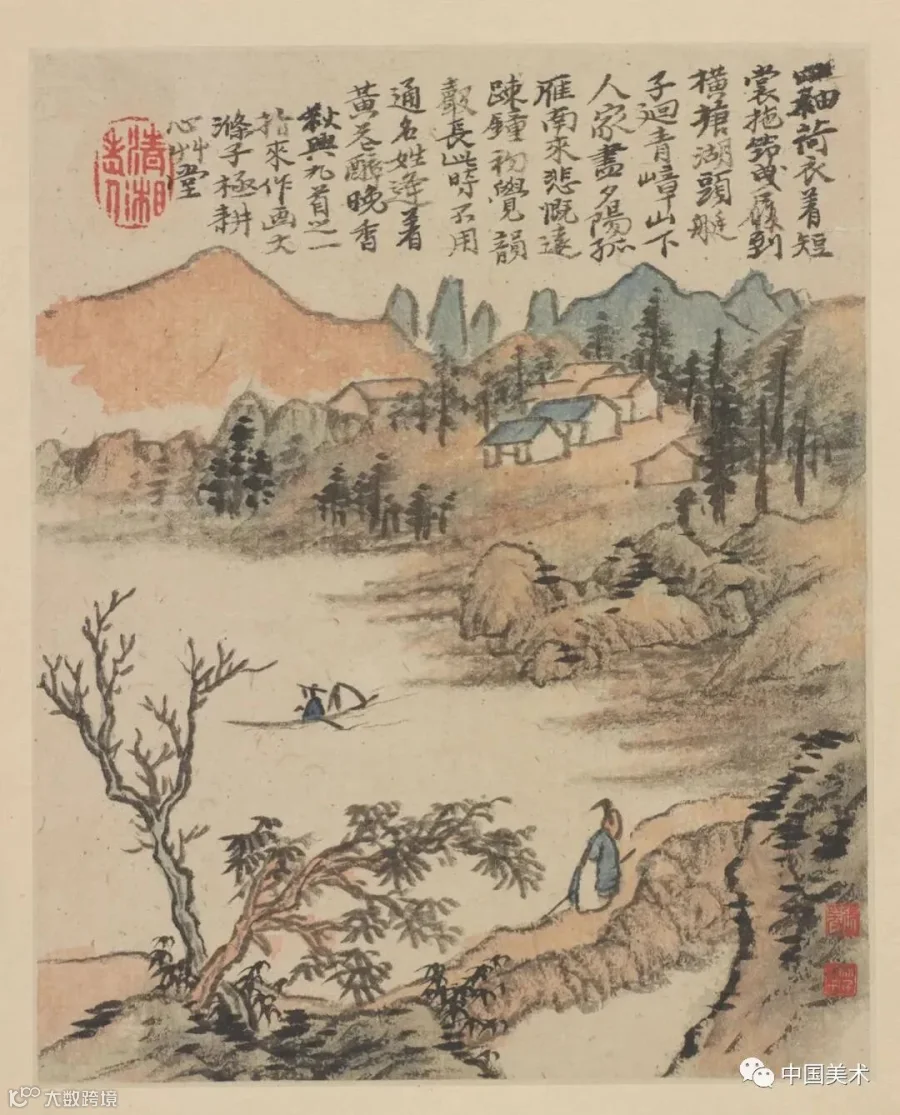 荷衣着短
裳拖筇曳履到
橫塘湖頭艇
子迴青嶂山下
人家盡夕陽孤
雁南來悲慨遠
疎鐘初覺韻
聲長此時不用
通名姓逢着
黃花醉晚香
秋興九首之一
拈來作画大
滌子極耕
心艸堂
清湘老人
中国美术
大数跨境